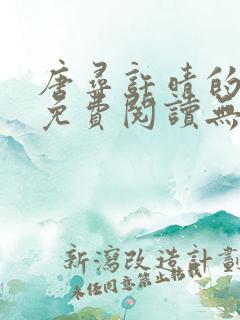 唐尋許晴的
免費閱讀無
新瀉改造計劃
未經同意禁止轉載